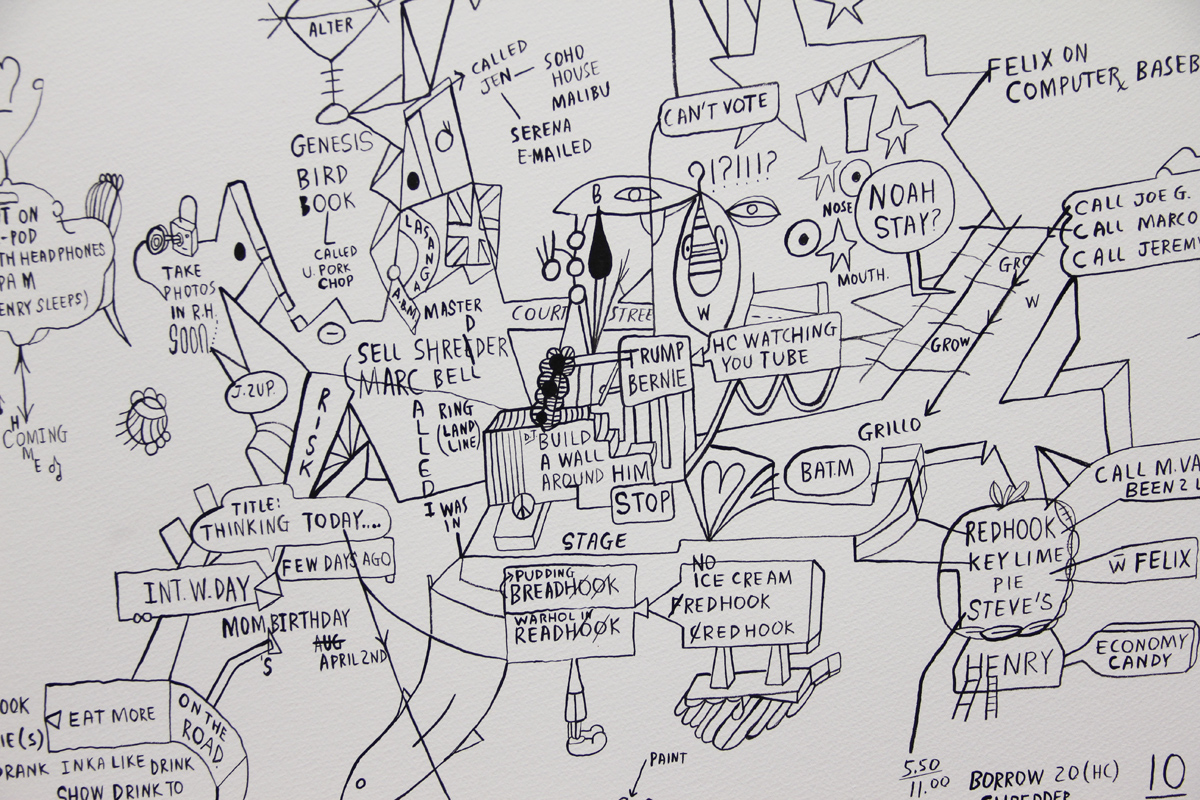 ALTER
CALLED
JEN — SOHO
HOUSE
MALIBU
SERENA
E-MAILED
CAN'T VOTE
!?!!!?
FELIX ON
COMPUTER
GENESIS
BIRD
BOOK
CALLED
U. PORK
CHOP
?
T ON
-POD
TH HEADPHONES
ENRY SLEEPS)
TAKE
PHOTOS
IN R.H.
SOON
LASANGA
B
NOSE
MOUTH.
NOAH
STAY?
CALL JOE G.
CALL MARCO
CALL JEREMY
GRO
W
GROW
W
COURT STREE
MASTER
SELL SHREDDER
MARC BELL
TRUMP
BERNIE
HC WATCHING
YOU TUBE
J.2UP.
RISK
CALLED
RING
(LAND)
(LINE)
I WAS
IN
BUILD
A WALL
AROUND HIM
STOP
STAGE
BAT.M
GRILLO
CALL M.VA
BEEN 2 L
COMING
ME
TITLE:
THINKING TODAY....
FEW DAYS AGO
INT. W. DAY
MOM BIRTHDAY
'S
AUG
APRIL 2ND
PUDDING
BREADHOOK
WARHOL IN
READHOOK
NO
ICE CREAM
FREDHOOK
REDHOOK
REDHOOK
KEY LIME
PIE
STEVE'S
W FELIX
HENRY
ECONOMY
CANDY
OOK
IE(S)
EAT MORE
ON THE
ROAD
DRANK INKA LIKE DRINK
SHOW DRINK TO
PAINT
5.50
11.00
BORROW 20 (HC)
SHREDDER
10